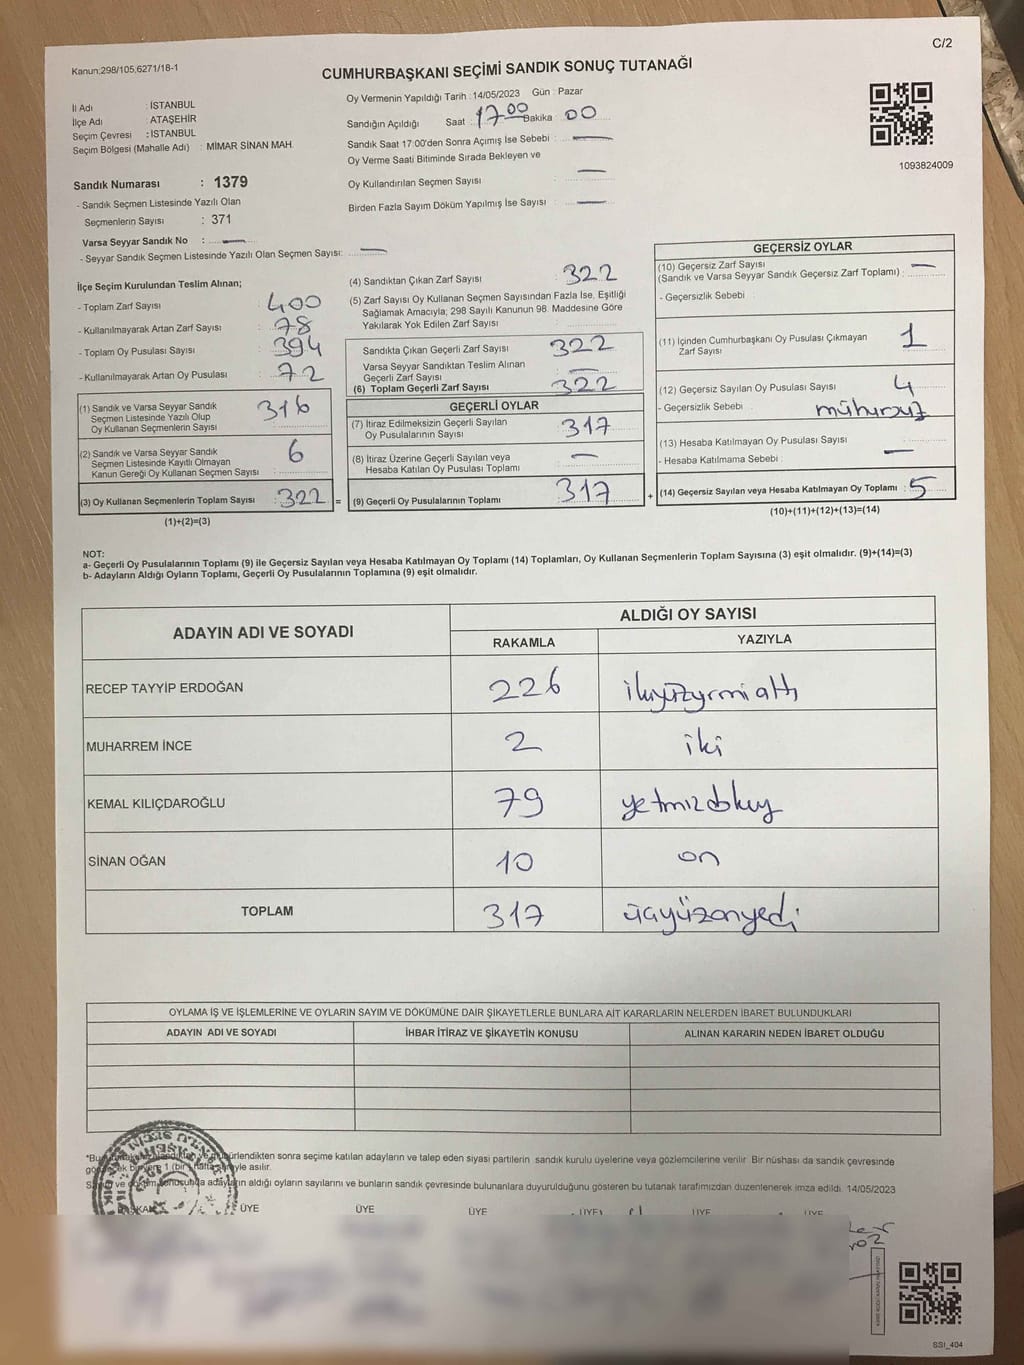 C/2
Kanun;298/105;6271/18-1
CUMHURBAŞKANI SEÇİMİ SANDIK SONUÇ TUTANAĞI
İl Adı : İSTANBUL
İlçe Adı : ATAŞEHİR
Seçim Çevresi : İSTANBUL
Seçim Bölgesi (Mahalle Adı) : MİMAR SİNAN MAH.
Oy Vermenin Yapıldığı Tarih : 14/05/2023 Gün : Pazar
Sandığın Açıldığı Saat : 17.00 Bakika : 00
Sandık Saat 17:00'den Sonra Açımış İse Sebebi : —
Oy Verme Saati Bitiminde Sırada Bekleyen ve
Oy Kullandırılan Seçmen Sayısı —
Birden Fazla Sayım Döküm Yapılmış İse Sayısı : —
1093824009
Sandık Numarası : 1379
- Sandık Seçmen Listesinde Yazılı Olan
Seçmenlerin Sayısı : 371
Varsa Seyyar Sandık No : —
- Seyyar Sandık Seçmen Listesinde Yazılı Olan Seçmen Sayısı: —
İlçe Seçim Kurulundan Teslim Alınan;
- Toplam Zarf Sayısı : 400
- Kullanılmayarak Artan Zarf Sayısı : 78
- Toplam Oy Pusulası Sayısı : 394
- Kullanılmayarak Artan Oy Pusulası : 72
(1) Sandık ve Varsa Seyyar Sandık
Seçmen Listesinde Yazılı Olup
Oy Kullanan Seçmenlerin Sayısı : 316
(2) Sandık ve Varsa Seyyar Sandık
Seçmen Listesinde Kayıtlı Olmayan
Kanun Gereği Oy Kullanan Seçmen Sayısı : 6
(3) Oy Kullanan Seçmenlerin Toplam Sayısı : 322 =
(1)+(2)=(3)
(4) Sandıktan Çıkan Zarf Sayısı : 322
(5) Zarf Sayısı Oy Kullanan Seçmen Sayısından Fazla İse, Eşitliği
Sağlamak Amacıyla; 298 Sayılı Kanunun 98. Maddesine Göre
Yakılarak Yok Edilen Zarf Sayısı :
Sandıkta Çıkan Geçerli Zarf Sayısı : 322
Varsa Seyyar Sandıktan Teslim Alınan
Geçerli Zarf Sayısı : —
(6) Toplam Geçerli Zarf Sayısı : 322
GEÇERLİ OYLAR
(7) İtiraz Edilmeksizin Geçerli Sayılan
Oy Pusulalarının Sayısı : 317
(8) İtiraz Üzerine Geçerli Sayılan veya
Hesaba Katılan Oy Pusulası Toplamı : —
(9) Geçerli Oy Pusulalarının Toplamı : 317 +
GEÇERSİZ OYLAR
(10) Geçersiz Zarf Sayısı
(Sandık ve Varsa Seyyar Sandık Geçersiz Zarf Toplamı) : —
- Geçersizlik Sebebi :
(11) İçinden Cumhurbaşkanı Oy Pusulası Çıkmayan
Zarf Sayısı : 1
(12) Geçersiz Sayılan Oy Pusulası Sayısı : 4
- Geçersizlik Sebebi : mühürsüz
(13) Hesaba Katılmayan Oy Pusulası Sayısı :
- Hesaba Katılmama Sebebi : —
(14) Geçersiz Sayılan veya Hesaba Katılmayan Oy Toplamı : 5
(10)+(11)+(12)+(13)=(14)
NOT:
a- Geçerli Oy Pusulalarının Toplamı (9) ile Geçersiz Sayılan veya Hesaba Katılmayan Oy Toplamı (14) Toplamları, Oy Kullanan Seçmenlerin Toplam Sayısına (3) eşit olmalıdır. (9)+(14)=(3)
b- Adayların Aldığı Oyların Toplamı, Geçerli Oy Pusulalarının Toplamına (9) eşit olmalıdır.
ADAYIN ADI VE SOYADI ALDIĞI OY SAYISI
RAKAMLA YAZIYLA
RECEP TAYYİP ERDOĞAN 226 ikiyüzyirmi altı
MUHARREM İNCE 2 iki
KEMAL KILIÇDAROĞLU 79 yetmizdokuy
SİNAN OĞAN 10 on
TOPLAM 317 üçyüzonyedi
OYLAMA İŞ VE İŞLEMLERİNE VE OYLARIN SAYIM VE DÖKÜMÜNE DAİR ŞİKAYETLERLE BUNLARA AİT KARARLARIN NELERDEN İBARET BULUNDUKLARI
ADAYIN ADI VE SOYADI İHBAR İTİRAZ VE ŞİKAYETİN KONUSU ALINAN KARARIN NEDEN İBARET OLDUĞU
mühürlendikten sonra seçime katılan adayların ve talep eden siyasi partilerin sandık kurulu üyelerine veya gözlemcilerine verilir. Bir nüshası da sandık çevresinde
bir yere 1 (bir) hafta süreyle asılır.
ve döküm konusunda adayların aldığı oyların sayılarını ve bunların sandık çevresinde bulunanlara duyurulduğunu gösteren bu tutanak tarafımızdan düzenlenerek imza edildi. 14/05/2023
BAŞKAN ÜYE ÜYE ÜYE ÜYE ÜYE ÜYE
SSI_404